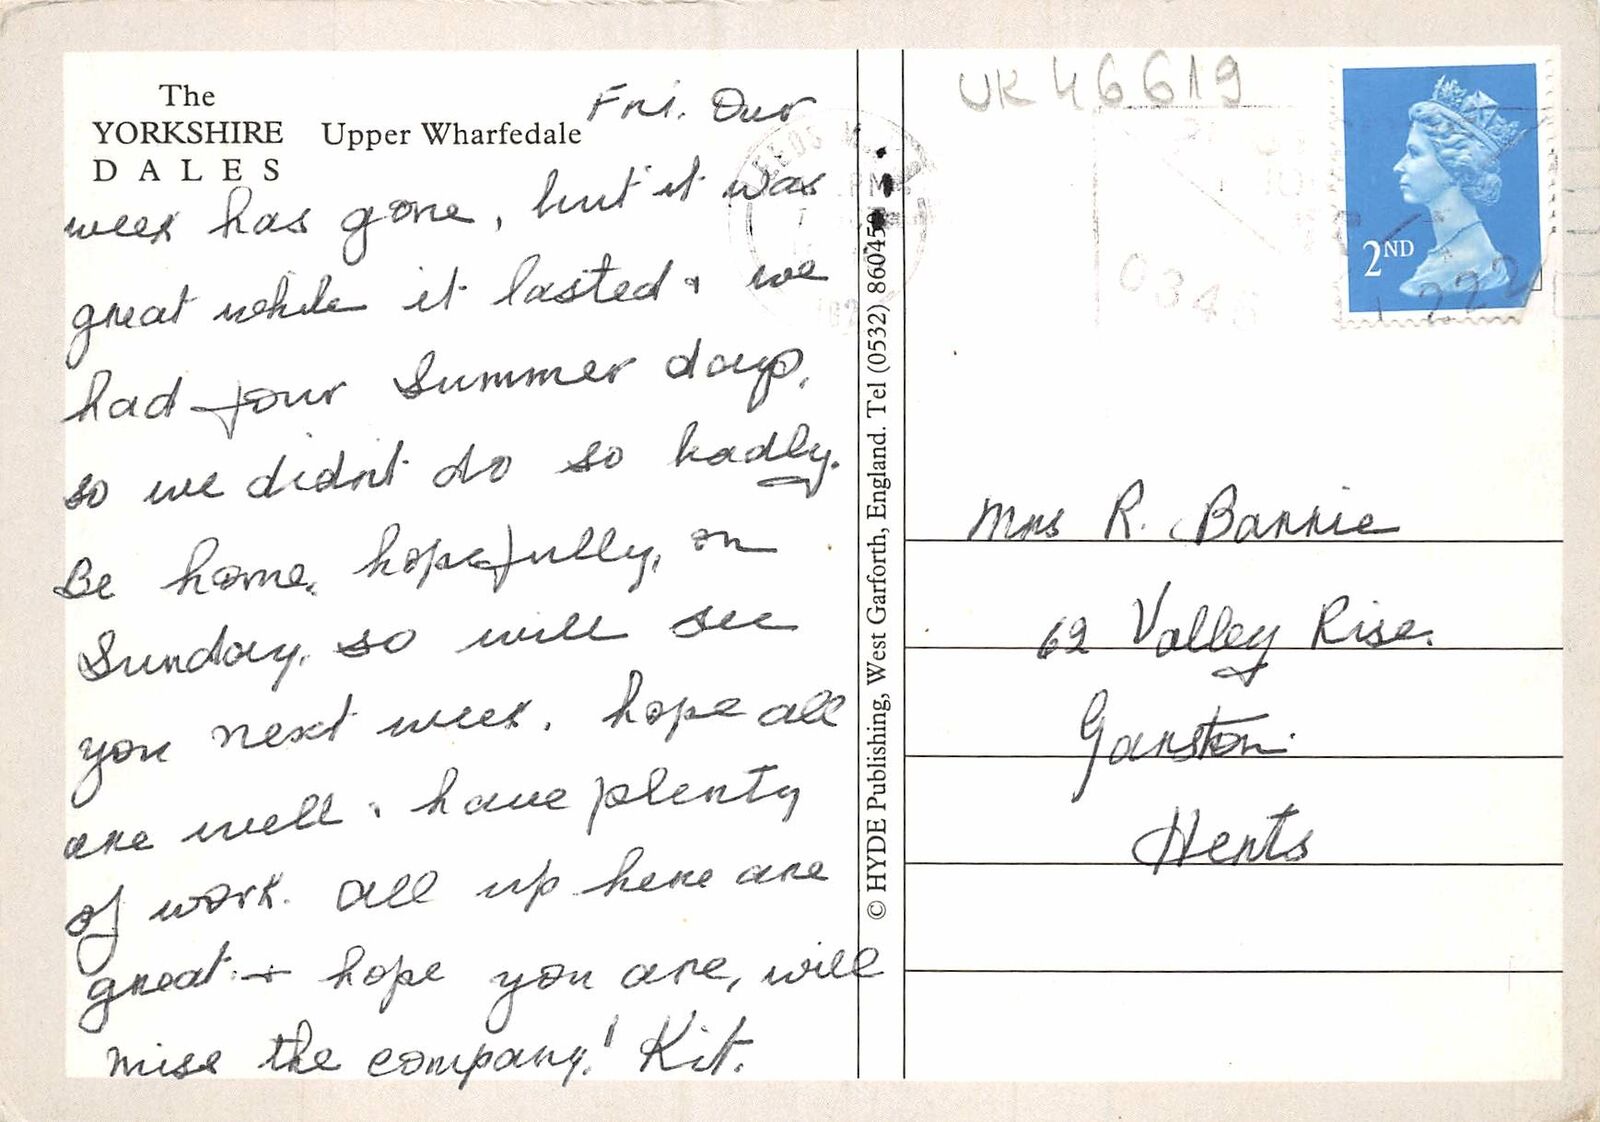 The
YORKSHIRE
DALES
Upper Wharfedale
Fri. Our
week has gone, but it was
great while it lasted & we
had four Summer days,
so we didn't do so badly.
Be home, hopefully, on
Sunday, so will see
you next week. hope all
are well & have plenty
of work. All up here are
great + hope you are, will
miss the company! Kit.
© HYDE Publishing, West Garforth, England. Tel (0532) 860459
UK 46619
2ND
0346
Mrs R. Barrie
62 Valley Rise.
Garston.
Herts